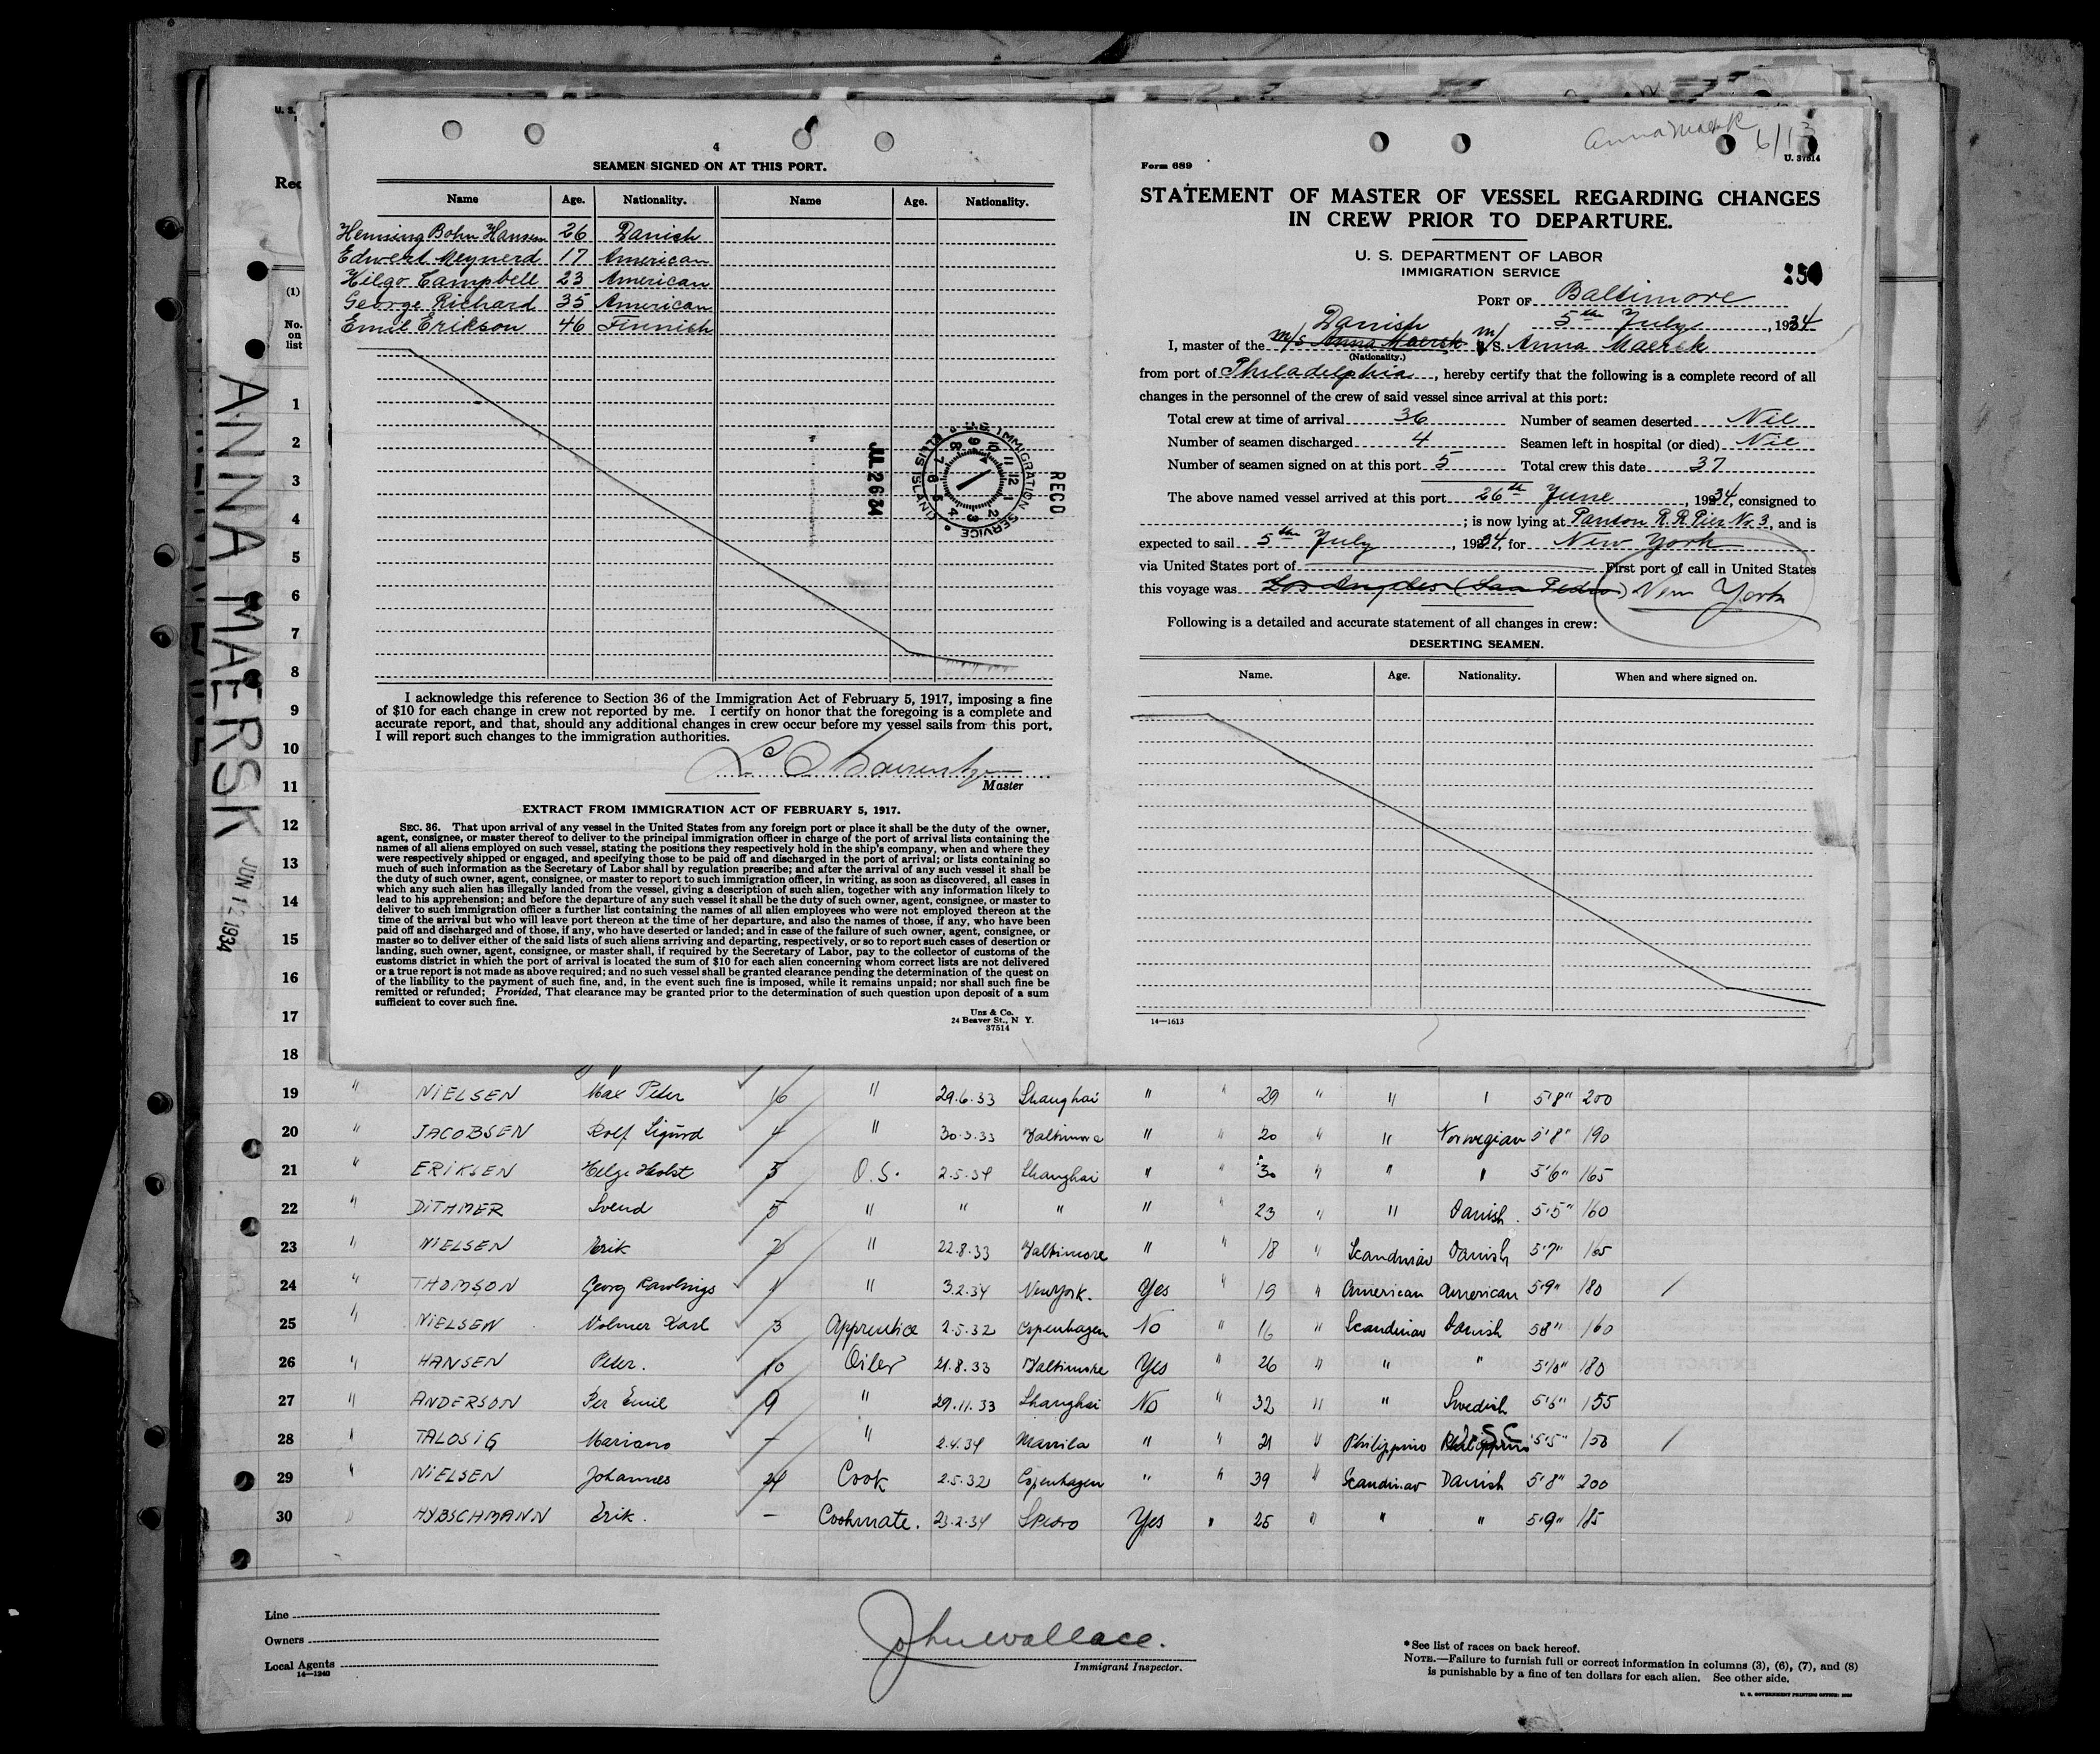 4
SEAMEN SIGNED ON AT THIS PORT.
Name Age. Nationality. Name Age. Nationality.
Henning Bohn Hansen 26 Danish
Edwerd Meynerd 17 American
Hilgo Campbell 23 American
George Richard 35 American
Emil Erikson 46 Finnish
JUL 26 34
U.S. IMMIGRATION SERVICE ELLIS ISLAND
REC'D
I acknowledge this reference to Section 36 of the Immigration Act of February 5, 1917, imposing a fine
of $10 for each change in crew not reported by me. I certify on honor that the foregoing is a complete and
accurate report, and that, should any additional changes in crew occur before my vessel sails from this port,
I will report such changes to the immigration authorities.
Master
EXTRACT FROM IMMIGRATION ACT OF FEBRUARY 5, 1917.
SEC. 36. That upon arrival of any vessel in the United States from any foreign port or place it shall be the duty of the owner,
agent, consignee, or master thereof to deliver to the principal immigration officer in charge of the port of arrival lists containing the
names of all aliens employed on such vessel, stating the positions they respectively hold in the ship's company, when and where they
were respectively shipped or engaged, and specifying those to be paid off and discharged in the port of arrival; or lists containing so
much of such information as the Secretary of Labor shall by regulation prescribe; and after the arrival of any such vessel it shall be
the duty of such owner, agent, consignee, or master to report to such immigration officer, in writing, as soon as discovered, all cases in
which any such alien has illegally landed from the vessel, giving a description of such alien, together with any information likely to
lead to his apprehension; and before the departure of any such vessel it shall be the duty of such owner, agent, consignee, or master to
deliver to such immigration officer a further list containing the names of all alien employees who were not employed thereon at the
time of the arrival but who will leave port thereon at the time of her departure, and also the names of those, if any, who have been
paid off and discharged and of those, if any, who have deserted or landed; and in case of the failure of such owner, agent, consignee, or
master so to deliver either of the said lists of such aliens arriving and departing, respectively, or so to report such cases of desertion or
landing, such owner, agent, consignee, or master shall, if required by the Secretary of Labor, pay to the collector of customs of the
customs district in which the port of arrival is located the sum of $10 for each alien concerning whom correct lists are not delivered
or a true report is not made as above required; and no such vessel shall be granted clearance pending the determination of the quest on
of the liability to the payment of such fine, and, in the event such fine is imposed, while it remains unpaid; nor shall such fine be
remitted or refunded; Provided, That clearance may be granted prior to the determination of such question upon deposit of a sum
sufficient to cover such fine.
Unz & Co.
24 Beaver St., N Y.
37514
Anna Maersk 6/13
Form 689 U. 37514
STATEMENT OF MASTER OF VESSEL REGARDING CHANGES
IN CREW PRIOR TO DEPARTURE.
U. S. DEPARTMENT OF LABOR
IMMIGRATION SERVICE
PORT OF Baltimore
5th July, 1934
Danish
I, master of the M/S Anna Maersk M/S. Anna Maersk
(Nationality.)
from port of Philadelphia, hereby certify that the following is a complete record of all
changes in the personnel of the crew of said vessel since arrival at this port:
Total crew at time of arrival 36 Number of seamen deserted Nil
Number of seamen discharged 4 Seamen left in hospital (or died) Nil
Number of seamen signed on at this port 5 Total crew this date 37
The above named vessel arrived at this port 26th June, 1934, consigned to
; is now lying at Panton R.R Pier Nr. 3, and is
expected to sail 5th July, 1934, for New York
via United States port of First port of call in United States
this voyage was Los Angeles (San Pedro) New York
Following is a detailed and accurate statement of all changes in crew:
DESERTING SEAMEN.
Name. Age. Nationality. When and where signed on.
14—1613
U. S.
Rec
(1)
No.
on
list
ANNA MAERSK
JUN 12 1934
1
2
3
4
5
6
7
8
9
10
11
12
13
14
15
16
17
18
19 " NIELSEN Max Peter 16 " 29.6.33 Shanghai " " 29 " " " 5'8" 200
20 " JACOBSEN Rolf Sigurd 4 " 30.3.33 Baltimore " " 20 " " Norwegian 5'8" 190
21 " ERIKSEN Helge Holst 3 O.S. 2.5.34 Shanghai " " 30 " " " 5'6" 165
22 " DITHMER Svend 5 " " " " " 23 " " Danish 5'5" 160
23 " NIELSEN Erik 2 " 22.8.33 Baltimore " " 18 " Scandinav Danish 5'7" 165
24 " THOMSON Georg Rawlings 1 " 3.2.34 NewYork. Yes " 19 " American American 5'9" 180 /
25 " NIELSEN Volmer Karl 3 Apprentice 2.5.32 Copenhagen No " 16 " Scandinav Danish 5'8" 160
26 " HANSEN Peter. 10 Oiler 21.8.33 Baltimore Yes " 26 " " " 5'10" 180
27 " ANDERSON Per Emil 9 " 29.11.33 Shanghai No " 32 " " Swedish 5'6" 155
28 " TALOSIG Mariano – " 2.4.34 Manila " " 21 " Philippino Philippino 5'5" 150 /
29 " NIELSEN Johannes 24 Cook 2.5.32 Copenhagen " " 39 " Scandinav Danish 5'8" 200
30 " HYBSCHMANN Erik. – Cooksmate. 23.2.34 SPedro Yes " 25 " " " 5'9" 185
Line
Owners
Local Agents
14—1240
John Wallace.
Immigrant Inspector.
*See list of races on back hereof.
NOTE.—Failure to furnish full or correct information in columns (3), (6), (7), and (8)
is punishable by a fine of ten dollars for each alien. See other side.
U. S. GOVERNMENT PRINTING OFFICE